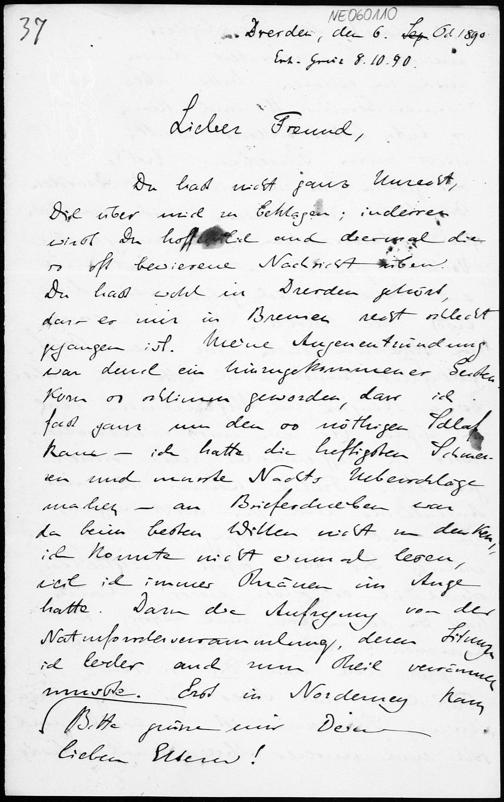 37
NE060110
Dresden, den 6. Sep Oct 1890
Erh. Greiz 8.10.90.
Lieber Freund,
Du hast nicht ganz Unrecht,
Dich über mich zu beklagen; indessen
wirst Du hoffentlich auch diesmal die
so oft bewiesene Nachsicht üben.
Du hast wohl in Dresden gehört,
dass es mir in Bremen recht schlecht
gegangen ist. Meine Augenentzündung
war durch ein hinzugekommenes Gersten-
korn so schlimm geworden, dass ich
fast ganz um den so nöthigen Schlaf
kam – ich hatte die heftigsten Schmer-
zen und musste Nachts Ueberschläge
machen – an Briefeschreiben war
da beim besten Willen nicht zu denken,
ich konnte nicht einmal lesen,
weil ich immer Thränen im Auge
hatte. Dazu die Aufregung von der
Naturforscherversammlung, deren Sitzungen
ich leider auch zum Theil versäumen
musste. Erst in Norderney kam
Bitte grüsse mir Deine
lieben Eltern!